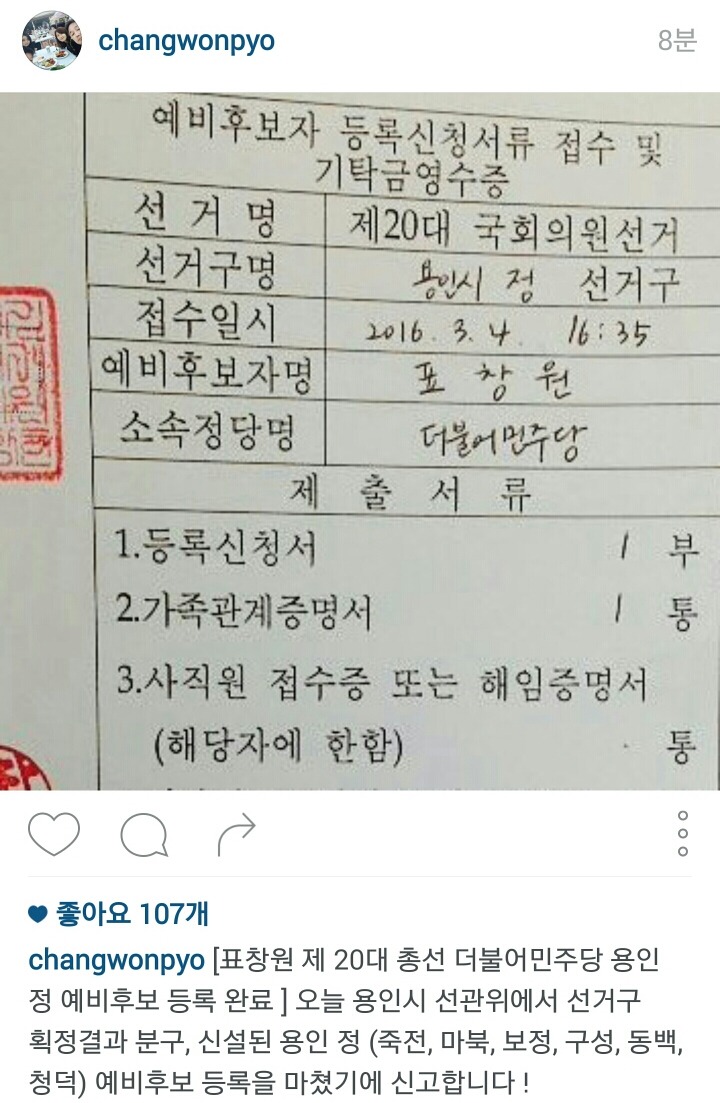 changwonpyo
8분
예비후보자 등록신청서류 접수 및
기탁금영수증
선 거 명 제20대 국회의원선거
선거구명 용인시 정 선거구
접수일시 2016. 3. 4. 16:35
예비후보자명 표 창 원
소속정당명 더불어민주당
제 출 서 류
1.등록신청서 1 부
2.가족관계증명서 1 통
3.사직원 접수증 또는 해임증명서
(해당자에 한함) · 통
좋아요 107개
changwonpyo [표창원 제 20대 총선 더불어민주당 용인
정 예비후보 등록 완료 ] 오늘 용인시 선관위에서 선거구
획정결과 분구, 신설된 용인 정 (죽전, 마북, 보정, 구성, 동백,
청덕) 예비후보 등록을 마쳤기에 신고합니다 !